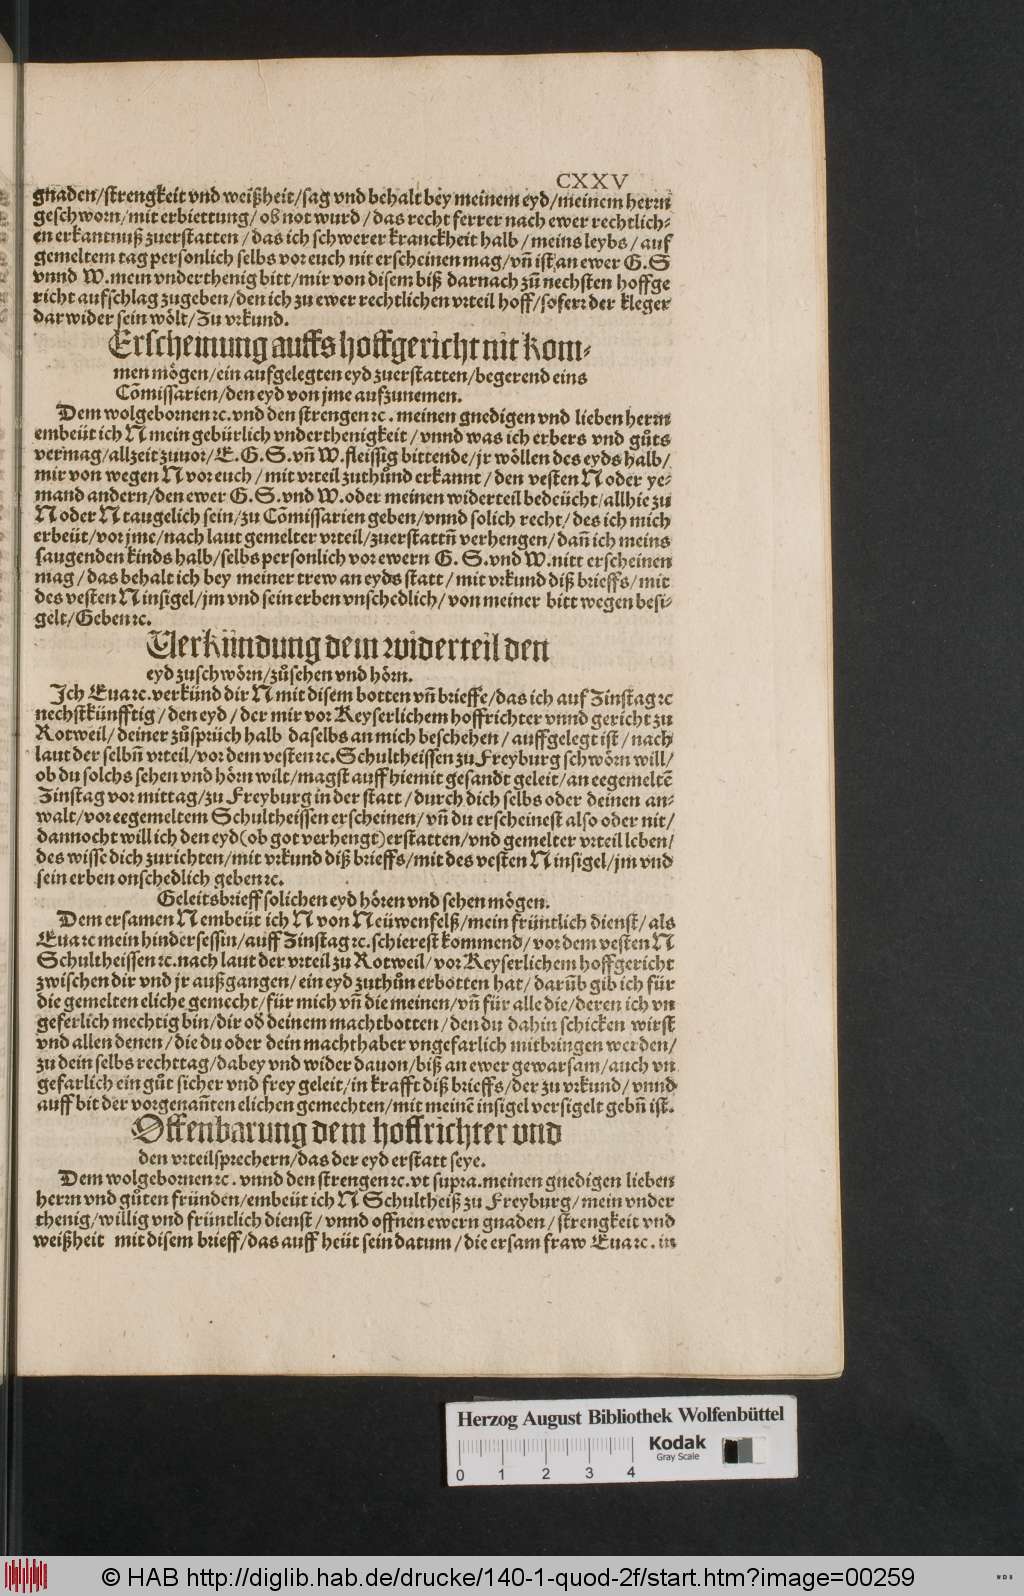 CXXV
gnaden/strengkeit vnd weißheit/sag vnd behalt bey meinem eyd/meinem herrn
geschworn/mit erbiettung/ ob not wurd/ das recht ferrer nach ewer rechtlich⸗
en erkantnuß zuerstatten/ das ich schwerer kranckheit halb/ meins leybs/ auf
gemeltem tag personlich selbs vor euch nit erscheinen mag/vñ ist an ewer G. S
vnnd W. mein vnderthenig bitt/mir von disem biß darnach zů nechsten hoffge
richt aufschlag zugeben/den ich zu ewer rechtlichen vrteil hoff/soferr der kleger
darwider sein wölt/Zu vrkund.
Erscheinung auffs hoffgericht nit kom⸗
men mögen/ein aufgelegten eyd zuerstatten/begerend eins
Cõmissarien/den eyd von jme aufzunemen.
Dem wolgebornen ꝛc. vnd den strengen ꝛc. meinen gnedigen vnd lieben herrn
embeüt ich N mein gebürlich vnderthenigkeit/ vnnd was ich erbers vnd gůts
vermag/allzeit zuuor/ E. G. S. vñ W. fleissig bittende/jr wöllen des eyds halb/
mir von wegen N vor euch/ mit vrteil zuthůnd erkannt/ den vesten N oder ye⸗
mand andern/den ewer G. S. vnd W. oder meinen widerteil bedeücht/allhie zu
N oder N taugelich sein/zu Cõmissarien geben/vnnd solich recht/ des ich mich
erbeüt/vor jme/nach laut gemelter vrteil/zuerstattñ verhengen/dañ ich meins
saugenden kinds halb/selbs personlich vor ewern G. S. vnd W. nitt erscheinen
mag/ das behalt ich bey meiner trew an eyds statt/ mit vrkund diß brieffs/ mit
des vesten N insigel/jm vnd sein erben vnschedlich/ von meiner bitt wegen besi⸗
gelt/Geben ꝛc.
Verkündung dem widerteil den
eyd zuschwörn/zůsehen vnd hörn.
Ich Eua ꝛc. verkünd dir N mit disem botten vñ brieffe/das ich auf Zinstag ꝛc
nechstkünfftig/ den eyd/ der mir vor Keyserlichem hoffrichter vnnd gericht zu
Rotweil/ deiner zůsprüch halb daselbs an mich beschehen/ auffgelegt ist/ nach
laut der selbñ vrteil/vor dem vesten ꝛc. Schultheissen zu Freyburg schwörn will/
ob du solchs sehen vnd hörn wilt/magst auff hiemit gesandt geleit/an eegemeltē
Zinstag vor mittag/zu Freyburg in der statt/ durch dich selbs oder deinen an⸗
walt/vor eegemeltem Schultheissen erscheinen/ vñ du erscheinest also oder nit/
dannocht will ich den eyd(ob got verhengt)erstatten/vnd gemelter vrteil leben/
des wisse dich zurichten/mit vrkund diß brieffs/mit des vesten N insigel/jm vnd
sein erben onschedlich geben ꝛc.
Geleitsbrieff solichen eyd hören vnd sehen mögen.
Dem ersamen N embeüt ich N von Neüwenfelß/mein früntlich dienst/ als
Eua ꝛc mein hindersessin/auff Zinstag ꝛc. schierest kommend/ vor dem vesten N
Schultheissen ꝛc. nach laut der vrteil zu Rotweil/ vor Keyserlichem hoffgericht
zwischen dir vnd jr außgangen/ ein eyd zuthůn erbotten hat/ darūb gib ich für
die gemelten eliche gemecht/für mich vñ die meinen/vñ für alle die/deren ich vn
geferlich mechtig bin/dir od̕ deinem machtbotten/ den du dahin schicken wirst
vnd allen denen/ die du oder dein machthaber vngefarlich mitbringen werden/
zu dein selbs rechttag/dabey vnd wider dauon/biß an ewer gewarsam/auch vn
gefarlich ein gůt sicher vnd frey geleit/in krafft diß brieffs/der zu vrkund/ vnnd
auff bit der vorgenañten elichen gemechten/mit meinē insigel versigelt gebñ ist.
Offenbarung dem hoffrichter vnd
den vrteilsprechern/das der eyd erstatt seye.
Dem wolgebornen ꝛc. vnnd den strengen ꝛc. vt supra. meinen gnedigen lieben
herrn vnd gůten fründen/embeüt ich N Schultheiß zu Freyburg/ mein vnder
thenig/willig vnd früntlich dienst/ vnnd offnen ewern gnaden/ strengkeit vnd
weißheit mit disem brieff/das auff heüt sein datum/ die ersam fraw Eua ꝛc. in
Herzog August Bibliothek Wolfenbüttel
Kodak
Gray Scale
0 1 2 3 4
© HAB http://diglib.hab.de/drucke/140-1-quod-2f/start.htm?image=00259